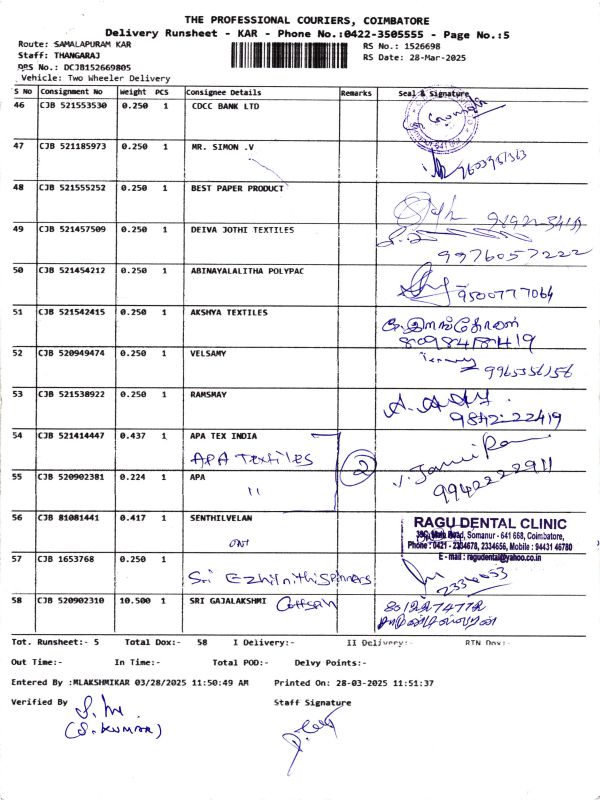 THE PROFESSIONAL COURIERS, COIMBATORE
Delivery Runsheet - KAR - Phone No.:0422-3505555 - Page No.:5
Route: SAMALAPURAM KAR
RS No.: 1526698
Staff: THANGARAJ
RS Date: 28-Mar-2025
DRS No.: DCJB152669805
Vehicle: Two Wheeler Delivery
S No Consignment No Weight PCS Consignee Details Remarks Seal & Signature
46 CJB 521553530 0.250 1 CDCC BANK LTD
47 CJB 521185973 0.250 1 MR. SIMON .V
48 CJB 521555252 0.250 1 BEST PAPER PRODUCT
49 CJB 521457509 0.250 1 DEIVA JOTHI TEXTILES
9976057222
50 CJB 521454212 0.250 1 ABINAYALALITHA POLYPAC
9500777064
51 CJB 521542415 0.250 1 AKSHYA TEXTILES
8098418419
52 CJB 520949474 0.250 1 VELSAMY
9965356156
53 CJB 521538922 0.250 1 RAMSMAY
9842222419
54 CJB 521414447 0.437 1 APA TEX INDIA
APA Textiles
2
55 CJB 520902381 0.224 1 APA
"
9942222911
56 CJB 81081441 0.417 1 SENTHILVELAN
RAGU DENTAL CLINIC
Road, Somanur - 641 668, Coimbatore,
Phone : 0421 - 2334678, 2334656, Mobile : 94431 46780
E - mail : ragudental@yahoo.co.in
57 CJB 1653768 0.250 1
Sri Ezhilnithi Spinners
2334653
58 CJB 520902310 10.500 1 SRI GAJALAKSHMI Cottspin
Tot. Runsheet:- 5 Total Dox:- 58 I Delivery:- II Delivery:- RTN Dox:-
Out Time:- In Time:- Total POD:- Delvy Points:-
Entered By :MLAKSHMIKAR 03/28/2025 11:50:49 AM Printed On: 28-03-2025 11:51:37
Verified By Staff Signature
(S. KUMAR)